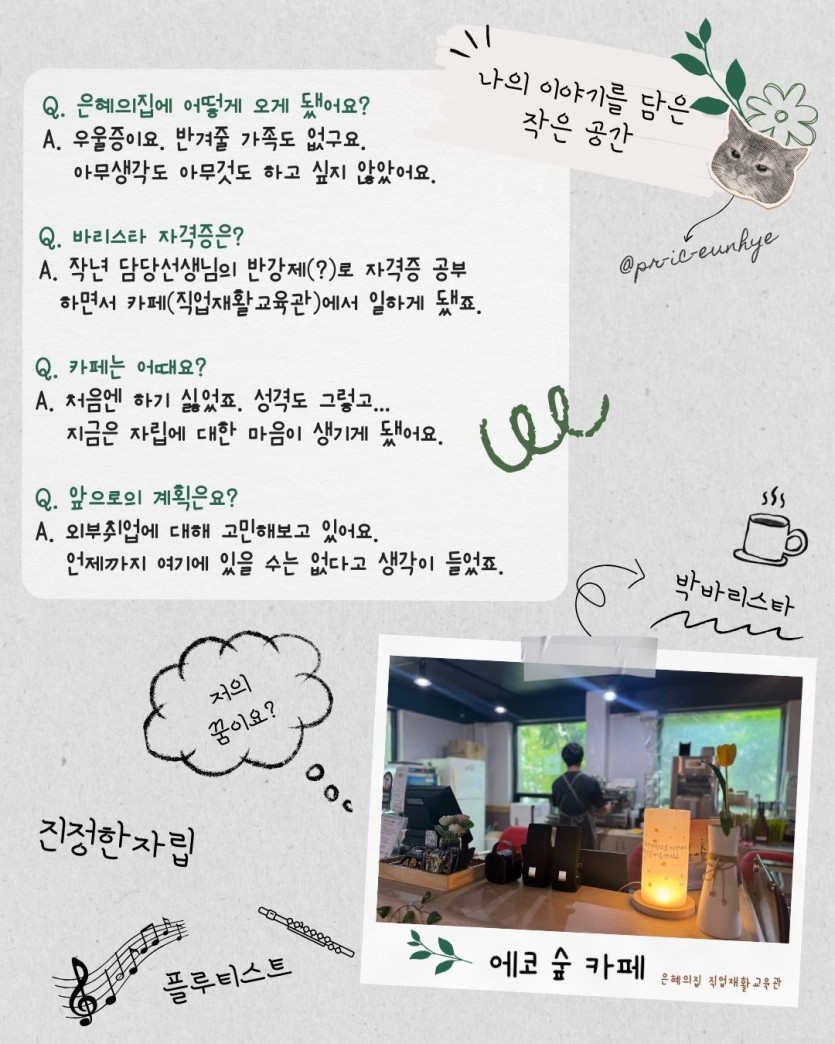 나의 이야기를 담은
작은 공간
@pr-ic-eunhye
Q. 은혜의집에 어떻게 오게 됐어요?
A. 우울증이요. 반겨줄 가족도 없구요.
아무생각도 아무것도 하고 싶지 않았어요.
Q. 바리스타 자격증은?
A. 작년 담당선생님의 반강제(?)로 자격증 공부
하면서 카페(직업재활교육관)에서 일하게 됐죠.
Q. 카페는 어때요?
A. 처음엔 하기 싫었죠. 성격도 그렇고...
지금은 자립에 대한 마음이 생기게 됐어요.
Q. 앞으로의 계획은요?
A. 외부취업에 대해 고민해보고 있어요.
언제까지 여기에 있을 수는 없다고 생각이 들었죠.
박바리스타
저의
꿈이요?
진정한자립
플루티스트
에코 숲 카페
은혜의집 직업재활교육관